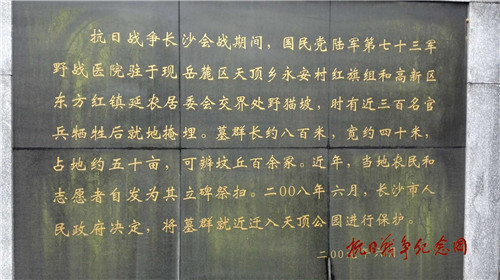 抗日战争长沙会战期间，国民党陆军第七十三军
野战医院驻于现岳麓区天顶乡永安村红旗组和高新区
东方红镇延农居委会交界处野猫坡，时有近三百名官
兵牺牲后就地掩埋。墓群长约八百米，宽约四十米，
占地约五十亩，可辨坟丘百余冢。近年，当地农民和
志愿者自发为其立碑祭扫。二〇〇八年六月，长沙市人
民政府决定，将墓群就近迁入天顶公园进行保护。
抗日战争纪念网